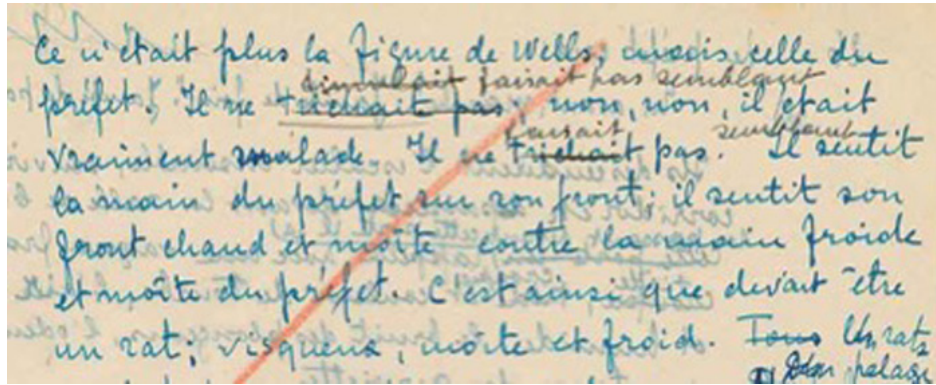 Ce n'était plus la figure de Wells, mais celle du
simulait faisait pas semblant
préfet. Il ne trichait pas, non, non, il était
faisait semblant
vraiment malade. Il ne trichait pas. Il sentit
la main du préfet sur son front; il sentit son
front chaud et moite contre la main froide
et moite du préfet. C'est ainsi que devait être
un rat; visqueux, moite et froid. Tous les rats
pelage